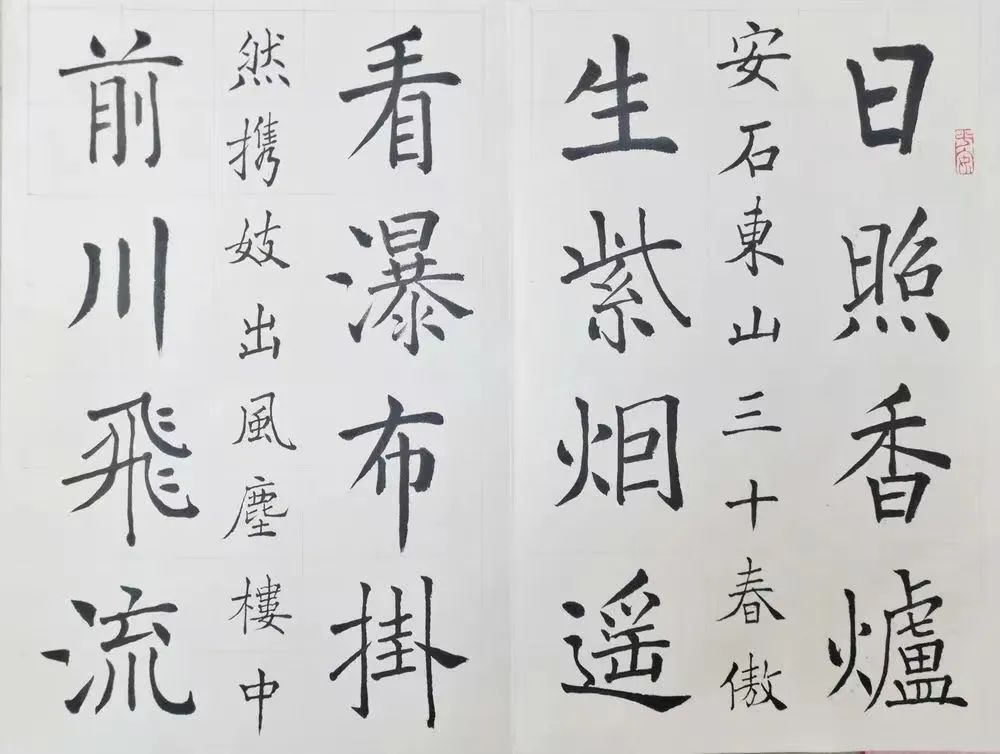 日照香爐
安石東山三十春傲
生紫烟遥
看瀑布掛
然攜妓出風塵樓中
前川飛流